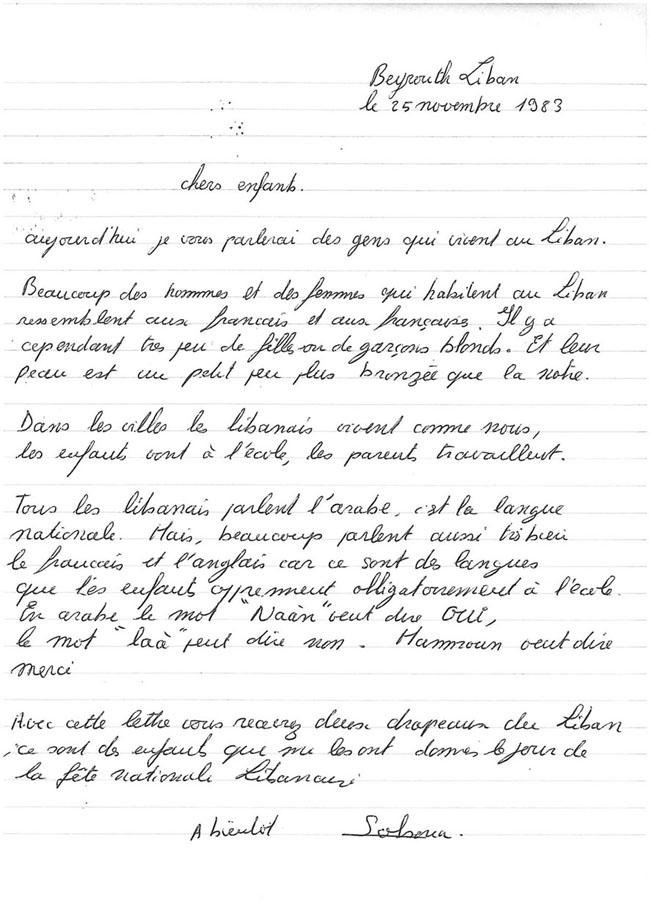 Beyrouth Liban
le 25 novembre 1983
chers enfants.
aujourd'hui je vous parlerai des gens qui vivent au Liban.
Beaucoup des hommes et des femmes qui habitent au Liban
ressemblent aux francais et aux françaises. Il y a
cependant très peu de filles ou de garçons blonds. Et leur
peau est un petit peu plus bronzée que la notre.
Dans les villes les libanais vivent comme nous,
les enfants vont à l'école, les parents travaillent.
Tous les libanais parlent l'arabe, c'est la langue
nationale. Mais, beaucoup parlent aussi très bien
le francais et l'anglais car ce sont des langues
que les enfants apprennent obligatoirement à l'école.
En arabe le mot "Naàn" veut dire OUI,
le mot "laà" veut dire non. Mamnoun veut dire
merci
Avec cette lettre vous recevrez deux drapeaux du Liban
, ce sont des enfants qui me les ont donnés le jour de
la fête nationale Libanaise
A bientôt